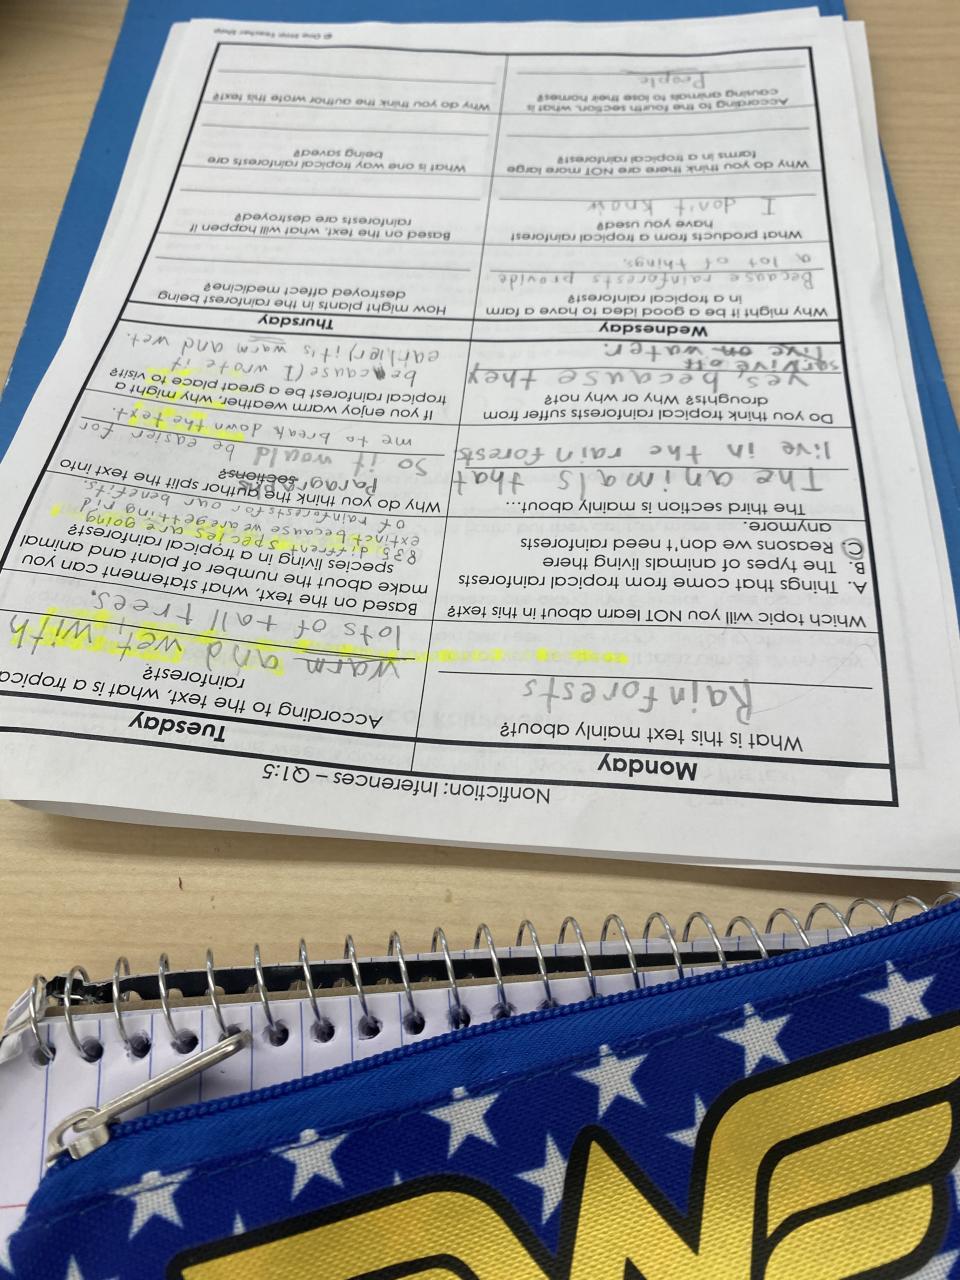 Nonfiction: Inferences – Q1:5
Monday
What is this text mainly about?
Rainforests
Which topic will you NOT learn about in this text?
A. Things that come from tropical rainforests
B. The types of animals living there
C. Reasons we don't need rainforests
anymore.
The third section is mainly about...
The animals that
live in the rainforests
Do you think tropical rainforests suffer from
droughts? Why or why not?
yes because they
survive off
live on water.
Tuesday
According to the text, what is a tropica
rainforest?
warm and wet with
lots of tall trees.
Based on the text, what statement can you
make about the number of plant and animal
species living in a tropical rainforest?
835 different species are going
extinct because we are getting rid
of rainforests for our benefits.
Why do you think the author split the text into
sections?
Paragraphs
So it would be easier for
me to break down the text.
If you enjoy warm weather, why might a
tropical rainforest be a great place to visit?
because (I wrote it
earlier) it's warm and wet.
Wednesday
Why might it be a good idea to have a farm
in a tropical rainforest?
Because rainforests provide
a lot of things.
What products from a tropical rainforest
have you used?
I don't know
Why do you think there are NOT more large
farms in a tropical rainforest?
According to the fourth section, what is
causing animals to lose their homes?
People
Thursday
How might plants in the rainforest being
destroyed affect medicine?
Based on the text, what will happen if
rainforests are destroyed?
What is one way tropical rainforests are
being saved?
Why do you think the author wrote this text?
© One Stop Teacher Shop